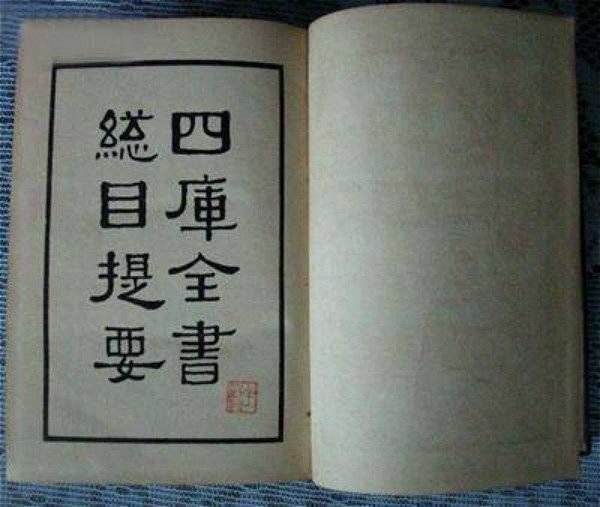 四庫全書
總目提要